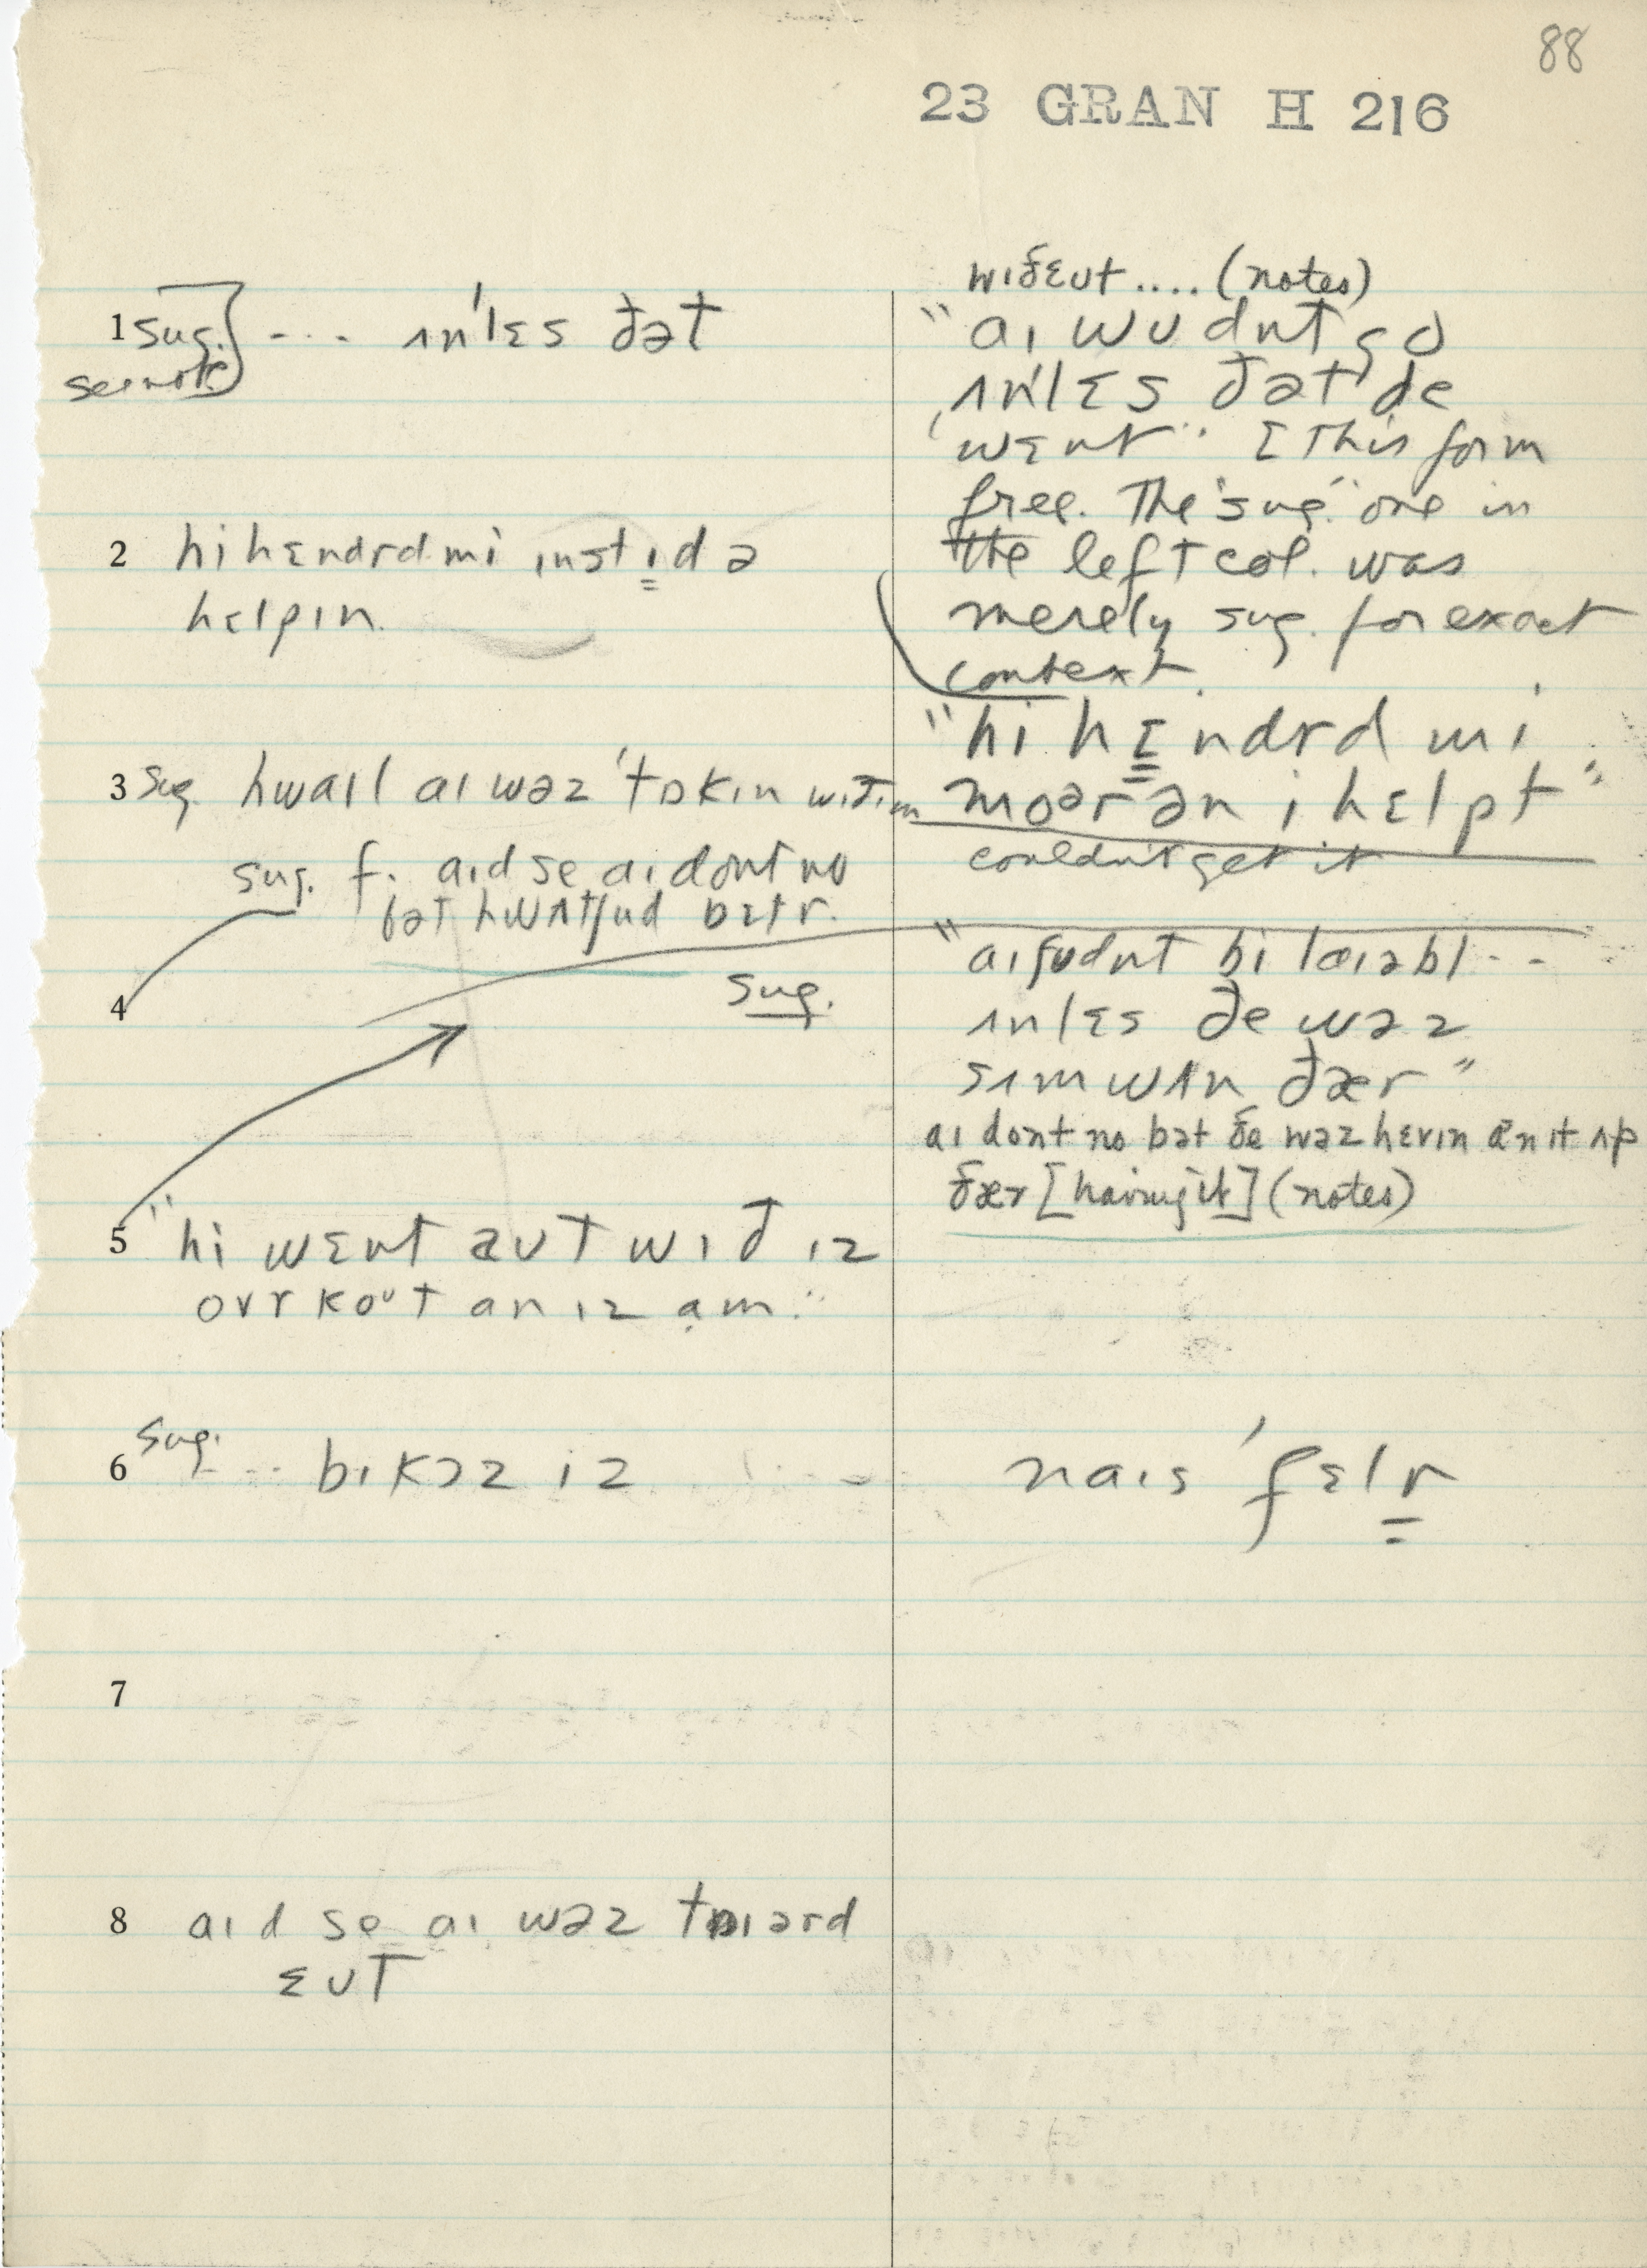 88
23 GRAN H 216
1 sug.] --- ʌnˈlɛs ðət
see note
2 hi hɛndrd mi ɪnstɪd ə
hɛlpɪn.
3 sug. hwaɪl aɪ wəz ˈtɒkɪn wɪð ɪm
sug. f. aɪd se aɪ dont no
bət hwʌt ʃud bɛtr.
4
sug.
5 "hi wɛnt aut wɪð ɪz
ovr koᵘt an ɪz am."
6 sug. --- bɪkəz ɪz
7
8 aɪd se aɪ wəz tɒɪərd
ɛut
wɪðɛut .... (notes)
"aɪ wudnt go
ʌnˈlɛs ðət ðe
wɛnt" [This form
free. The "sug." one in
the left col. was
merely sug. for exact
context.
"hi hɛndrd mi
moər ən i hɛlpt"
couldn't get it
"aɪ ʃudnt bi laɪəbl --
ʌnlɛs ðe wəz
sʌmwʌn ðær"
aɪ dont no bət ðe wəz hɛvɪn ən ɪt ʌp
ðær [having it] (notes)
naɪs ˈfɛlr